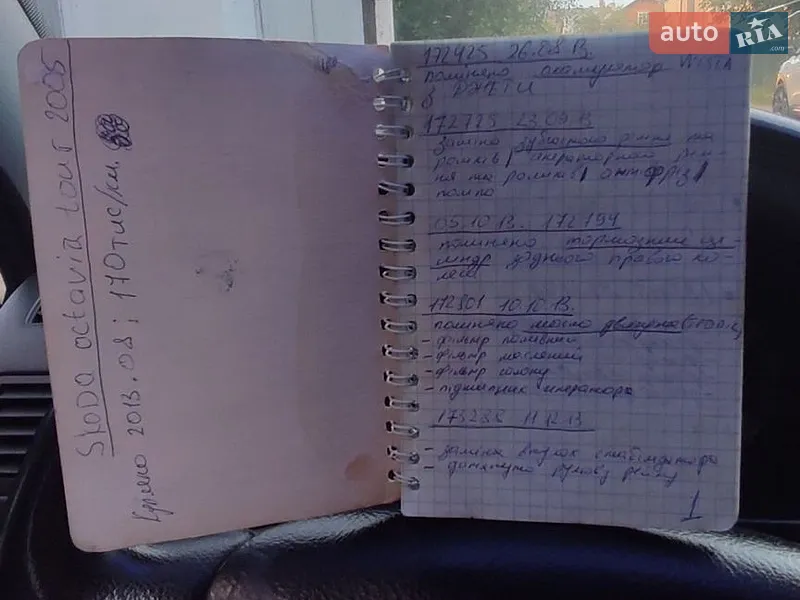 auto RIA .com
Skoda octavia tour 2005
Куплено 2013.08; 170 тис/км.
172425 26.08.13.
поміняно акамулятор
172779 23.09.13
заміна зубчастого ременя та
роликів, генераторного реме-
ня та роликів, антифріз,
помпа
05.10.13. 172794
поміняно тормозний ци-
ліндр заднього правого ко-
леса
172801 10.10.13.
поміняно масло двигуна
- фільтр паливний
- фільтр масляний
- фільтр салону
- підшипник генератора
173288 11.12.13
- заміна втулок стабілізатора
- рульову рейку
1